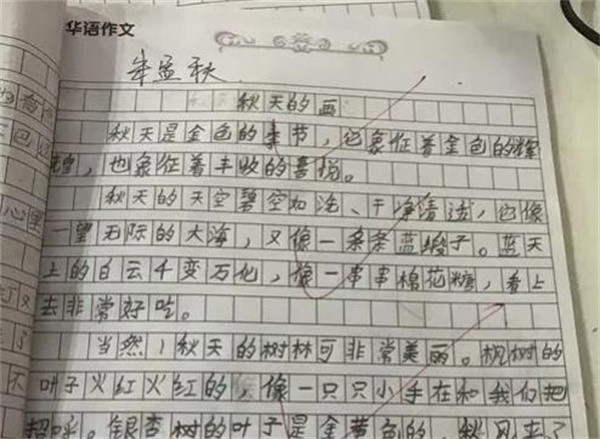 华语作文
牟孟秋
秋天的画
秋天是金色的季节，它象征着金色的辉
煌，也象征着丰收的喜悦。
秋天的天空碧空如洗、干净清透，它像
一望无际的大海，又像一条条蓝缎子。蓝天
上的白云千变万化，像一串串棉花糖，看上
去非常好吃。
当然！秋天的树林可非常美丽。枫树的
叶子火红火红的，像一只只小手在和我们把
招呼。银杏树的叶子是金黄色的，秋风来了
心里